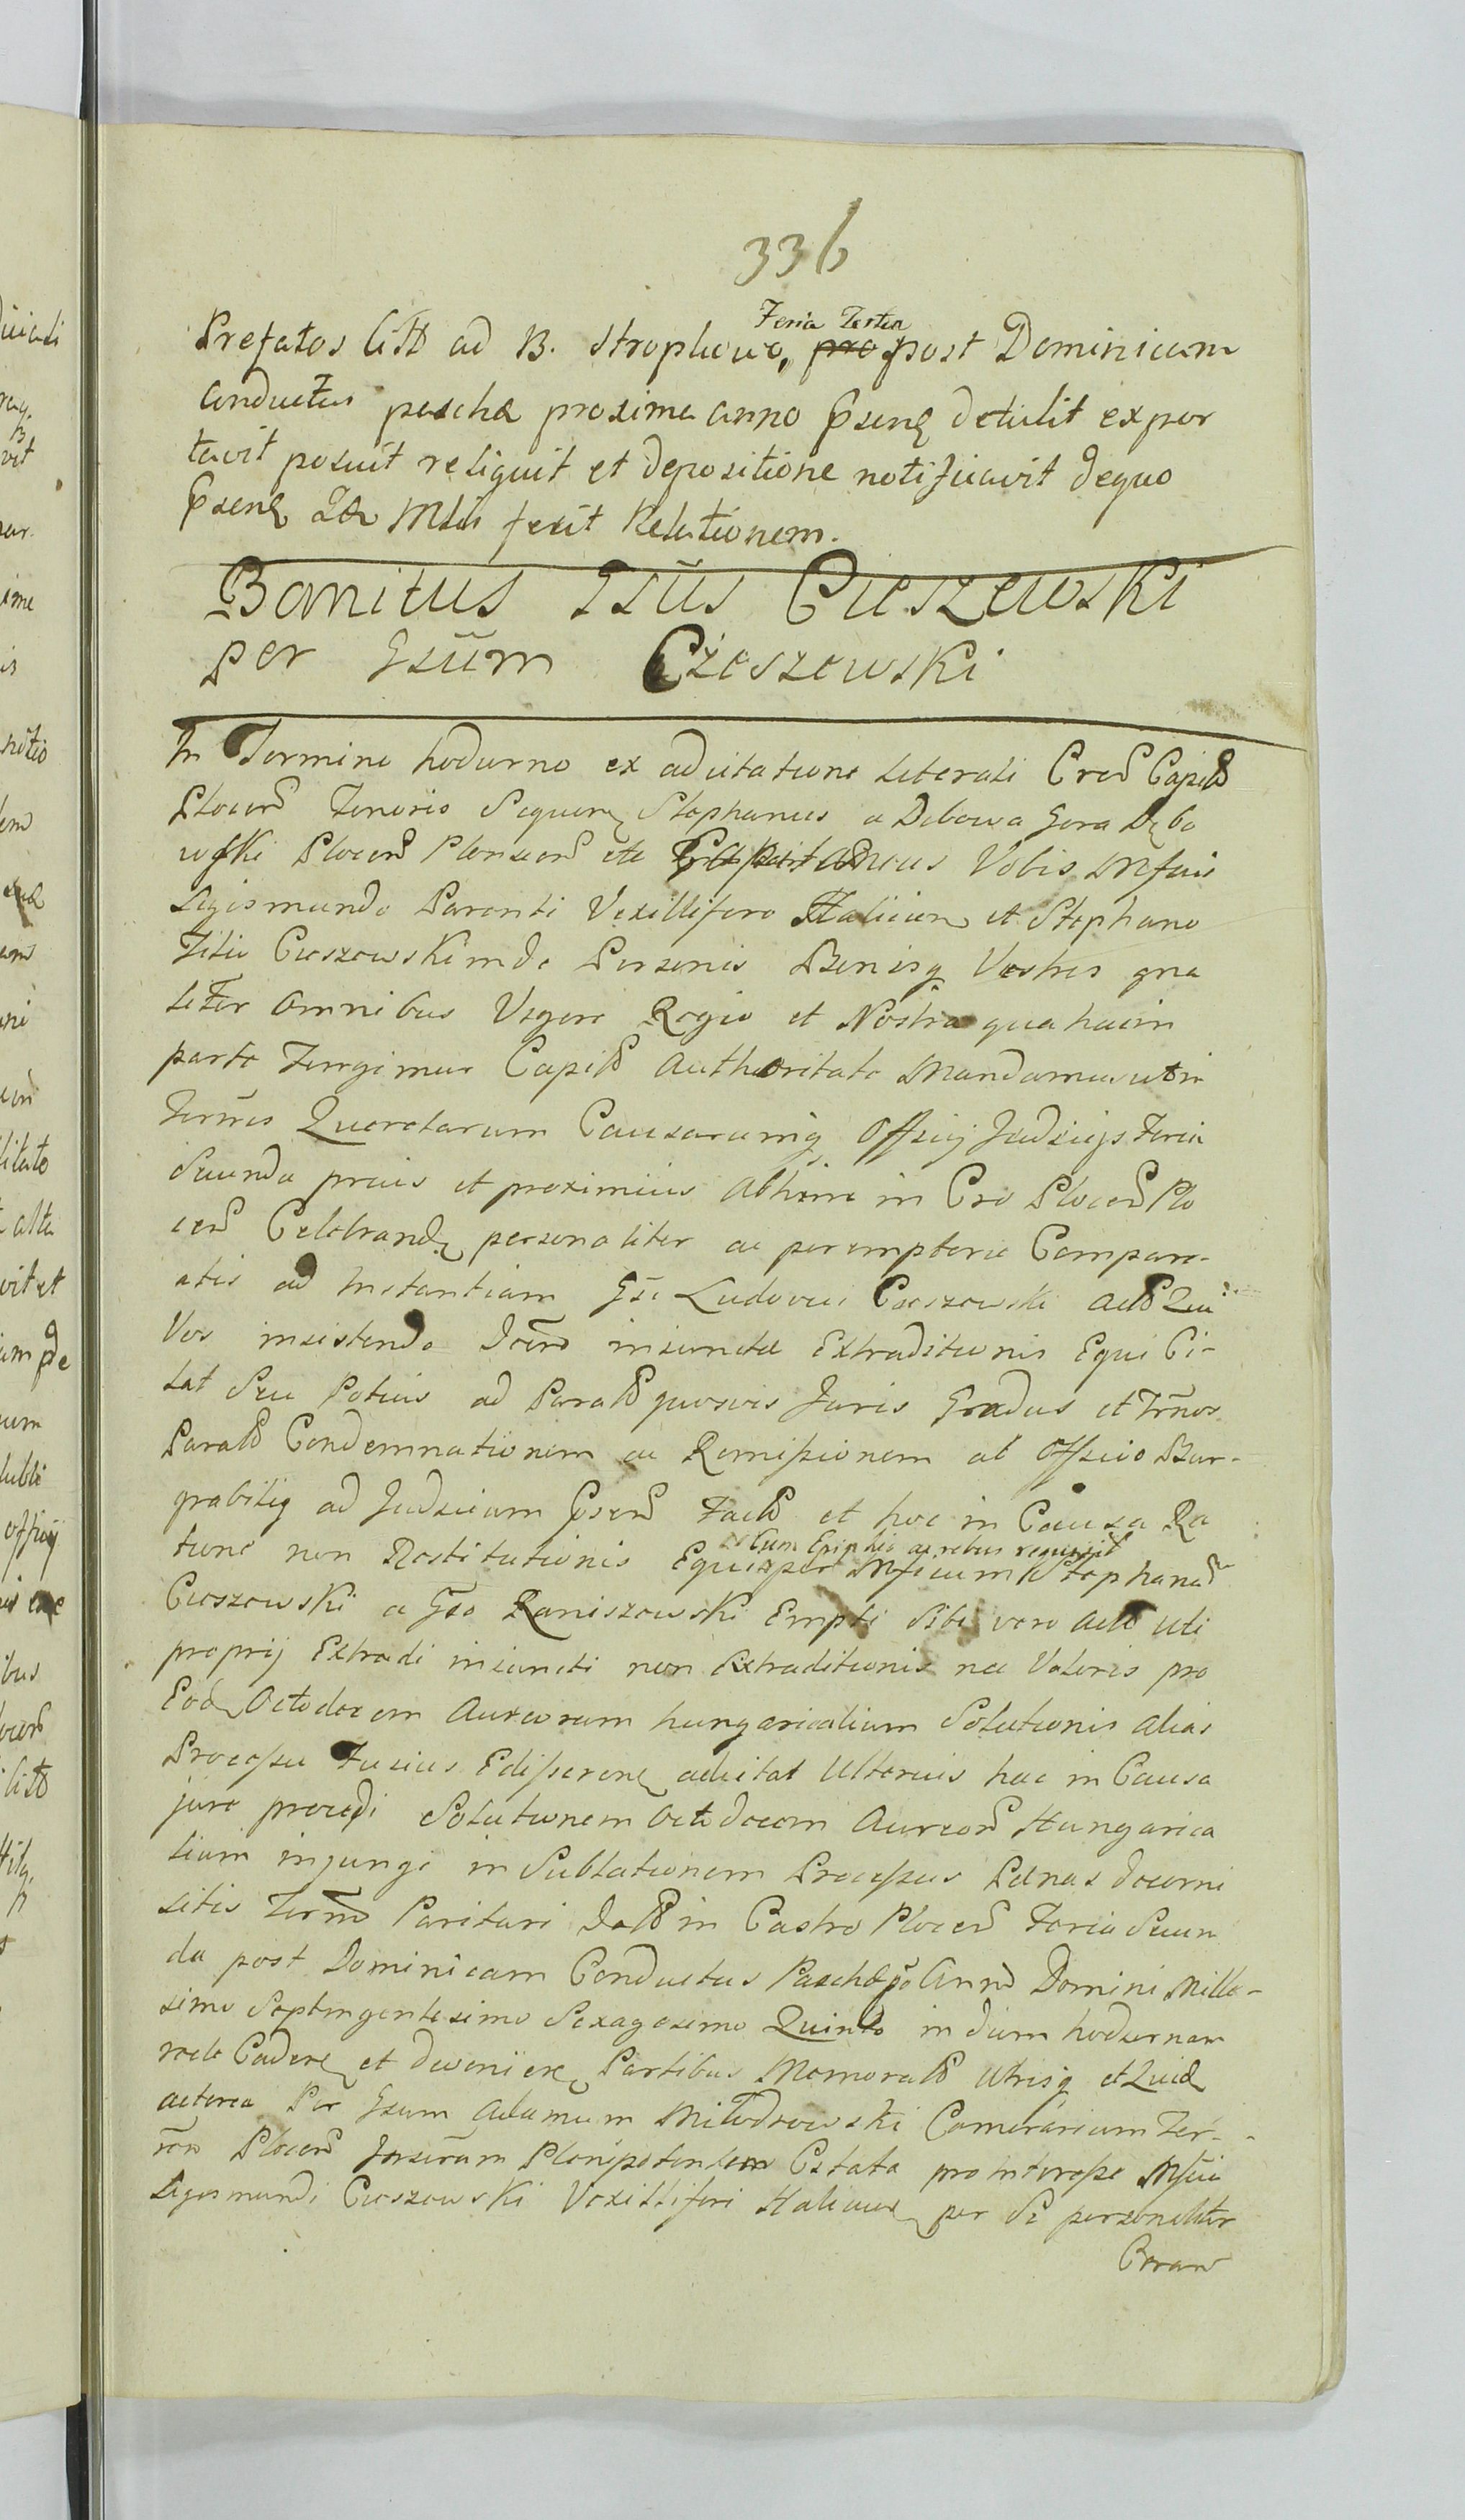 336
Feria Tertia
Prefatos litt ad B. Strophowo, pro post Dominicam
Conductus pascha proxima anno psen detulit expor
tavit posuit reliquit et depositione notificavit dequo
psen fecit Relationem.
Banitus Gsūs Cieszewski
per Gsūm Czeszewski
In Termino hodierno ex adcitatione Literali Cren Capit
Plocen Tenoris Sequen Stephanus a Dębowa Gora Dębo
wski Plocen Plonscen etc Capitaneus Vobis Mfcis
Sigismundo Parenti Vexillifero Halicien et Stephano
Filio Cieszewskim de Personis Bonisq Vestris gna
liter Omnibus Vigore Regio et Nostra qua hac in
parte fungimur Capit Authoritate Mandamus ut in
Termis Querelarum Causarumq Officij Judicijs Feria
Secunda prius et proximius Abhinc in Cro Plocen Plo
cen Celebrand personaliter ac peremptorie Compare-
atis ad Instantiam Gsi Ludovici Cieszewski Act Qui
Vos insistendo Decre iniuncta Extraditionis Equi Ci-
tat Seu Potius ad Parat quosvis Juris Gradus et Trnos
Parat Condemnationem ac Remissionem ab Officio Bur-
grabilig ad Judicium psen Fact et hoc in Causa Ra
Cum Ephipio ac rebus requisit
tione non Restitutionis Equi per Mficum Stephanu
Cieszewski a Gso Raniszewski Empti Sibi vero Act Uti
proprij Extradi iniuncti non Extraditionis nec Valoris pro
Eod Octodecem Aureorum hungaricalium Solutionis alias
Processu Fusius Edisseren adcitat Ulterius hac in Causa
jure procedi Solutionem Octodecem Aureor Hungarica
lium injungi in Sublationem Processus Pænas decerni
sitis Term Parituri Dat in Castro Plocen Feria Secun
da post Dominicam Conductus Paschæ Anno Domini Mille-
simo Septingentesimo Sexagesimo Quinto in diem hodiernam
recte Caden et devenien Partibus Memorat Utrisq et Quid
actorea Per Gsum Adamum Miłodrowski Camerarium Ter-
ren Plocen Jnscram Plenipotentem Citata pro Interesse Mfici
Sigismundi Cieszewski Vexilliferi Halicien per Se personaliter
Coram